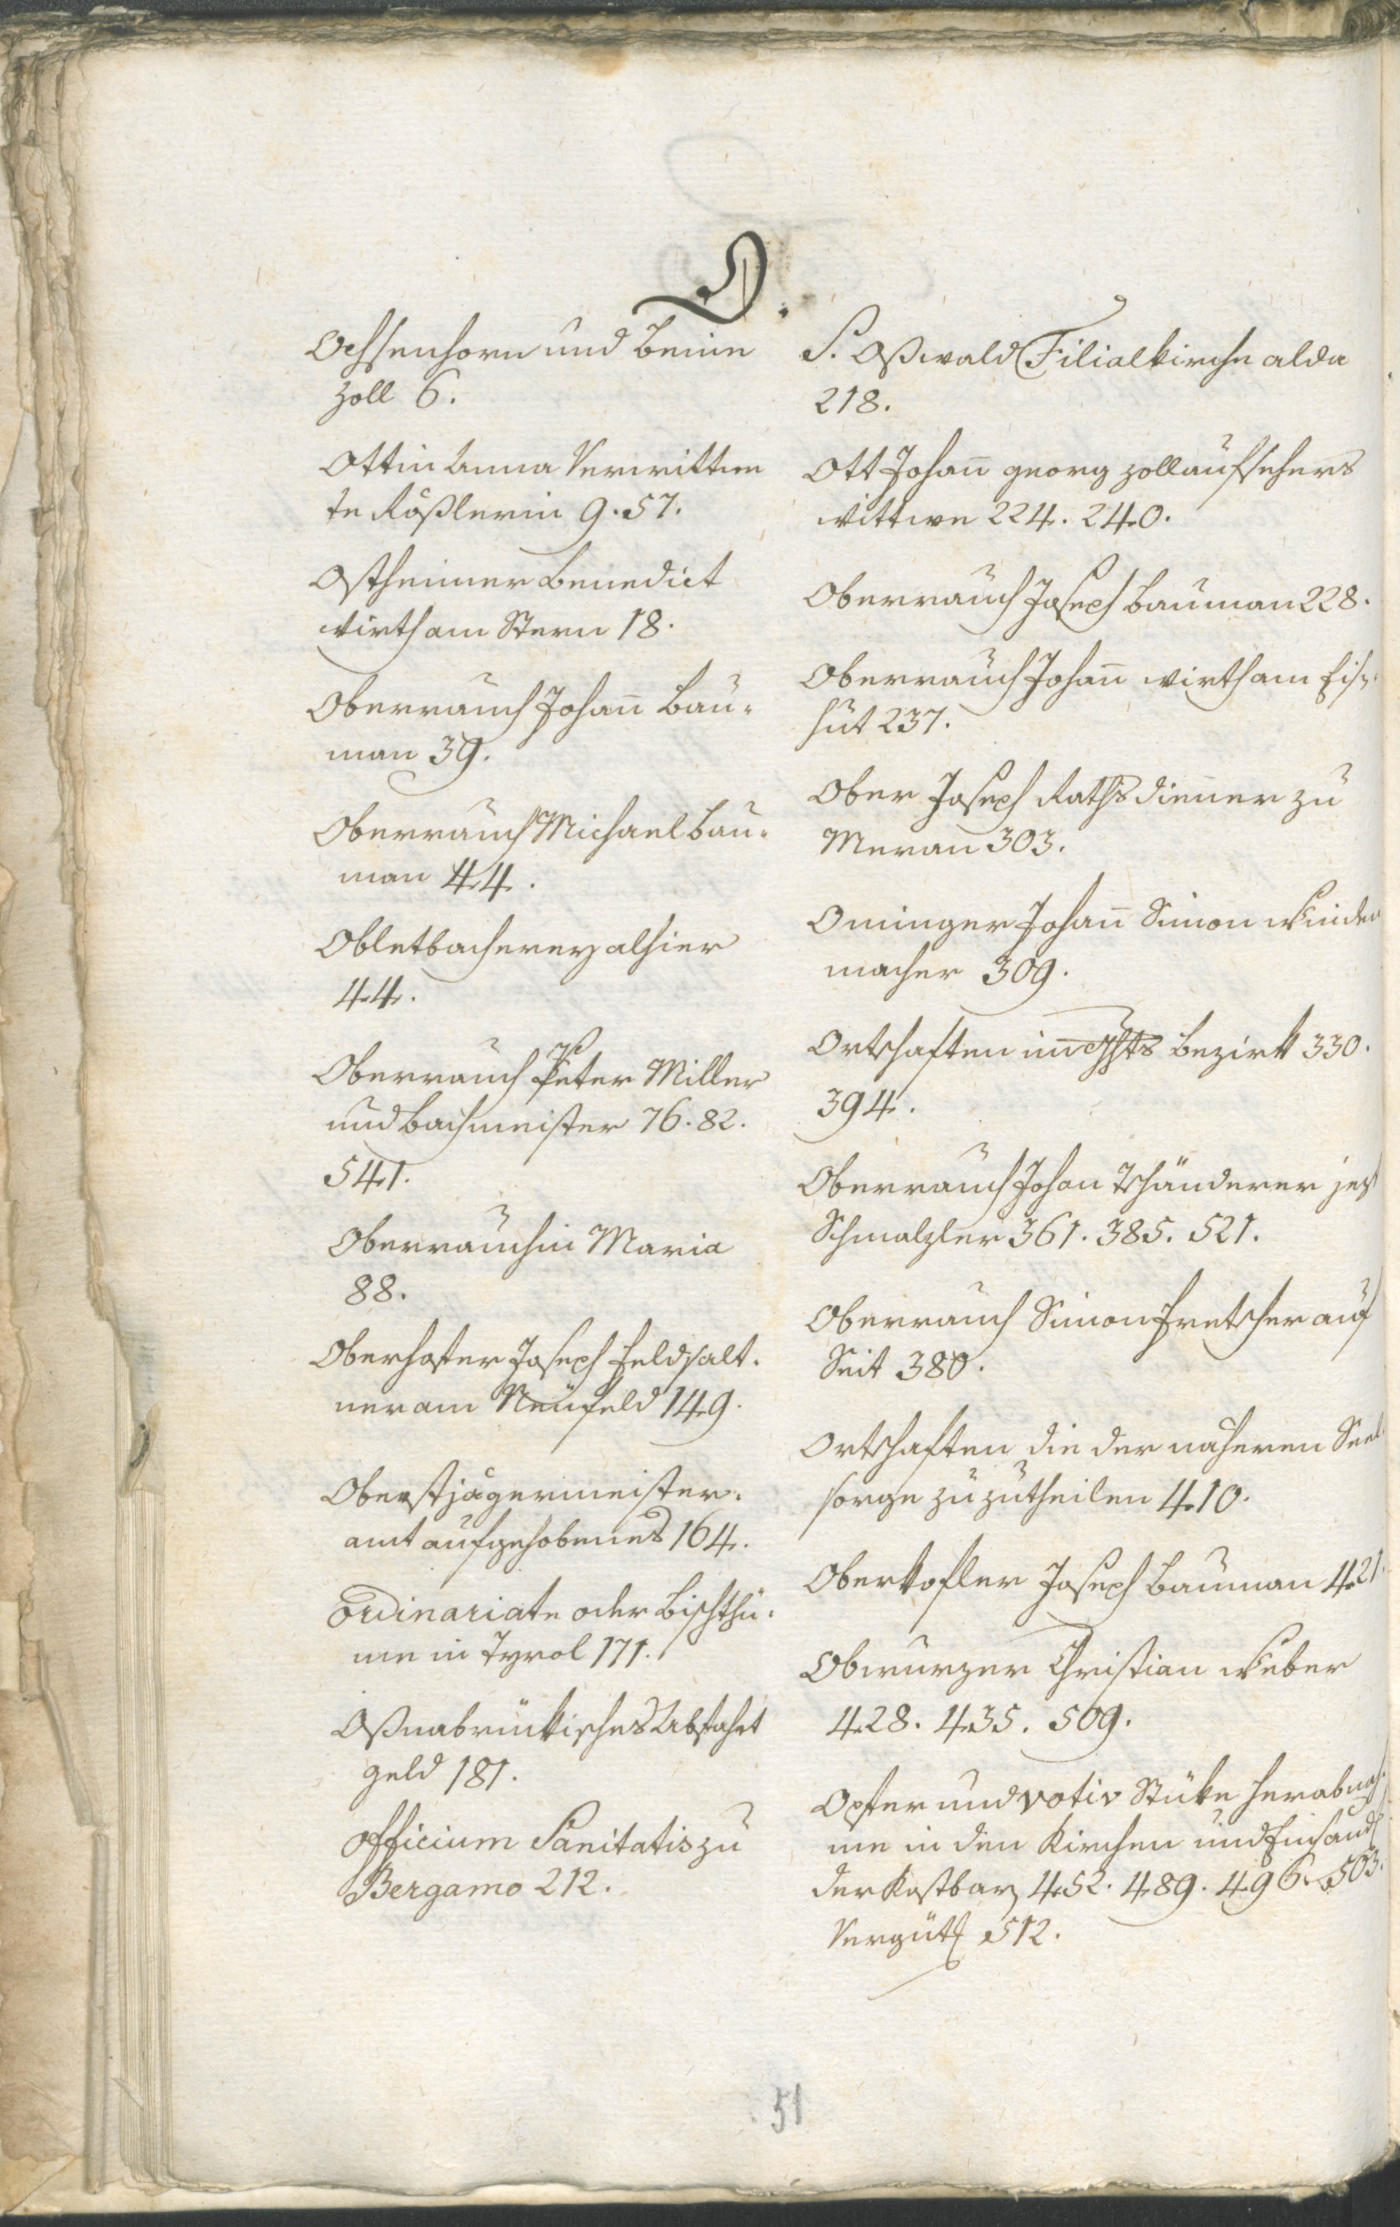 O.
Ochsenhorn und Beine
Zoll 6.
Ottin Anna Verwittwe
te Roßlerin 9. 57.
Ostheimer Benedict
Wirth am Stern 18.
Oberrauch Johañ Bau-
man 39.
Oberrauch Michael Bau-
man 44.
Obletbacherey alhier
44.
Oberrauch Peter Miller
und Bachmeister 76. 82.
541.
Oberrauchin Maria
88.
Oberhofer Joseph Feldsalt-
ner am Neufeld 149.
Oberstjägermeister-
amt aufgehobenes 164.
Ordinariate oder Bischthü-
me in Tyrol 171.
Oßnabrückisches Abfahrt
geld 181.
Officium Sanitatis zu
Bergamo 212.
S. Oßwald Filialkirche alda
218.
Ott Johañ Georg Zollaufsehers
Wittwe 224. 240.
Oberrauch Joseph Bauman 228.
Oberrauch Johañ Wirth am Eisen-
hut 237.
Ober Joseph Rathsdiener zu
Meran 303.
Oninger Johañ Simon
macher 309.
Ortschaften im Bezirk 330.
394.
Oberrauch Johan Tschänderer jezt
Schmalzler 361. 385. 521.
Oberrauch Simon Fretscher auf
Seit 380.
Ortschaften die der näheren Seel-
sorge zuzutheilen 410.
Oberkofler Joseph Bauman 421.
Obwurzer Christian Weber
428. 435. 509.
Opfer und votiv Stüke herabnah-
me in den Kirchen und Einsend
der Kostbar 452. 489. 496. 503.
Vergüt 512.
51